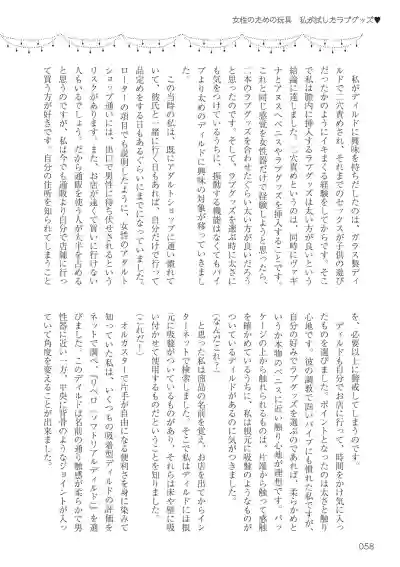 女性のための玩具　私が試したラブグッズ♥
私がディルドに興味を持ちだしたのは、ガラス製ディ
ルドで二穴責めされ、それまでのセックスが子供の遊び
だったかのようにイキまくる経験をしてからです。そこ
で私は膣内に挿入するラブグッズは太い方が良いという
結論に達しました。二穴責めというのは、同時にヴァギ
ナとアヌスへペニスやラブグッズを挿入することです。
これと同じ感覚を女性器だけで経験しようと思ったら
二本のラブグッズを合わせたぐらい太い方が良いだろう
と思ったのです。そして、ラブグッズを選ぶ時に太さに
こだわっているうちに、振動する機能はなくてもバイ
ブより太めのディルドに興味の対象が移っていきまし
た。
この当時の私は、既にアダルトショップに通い慣れて
いて、彼氏と一緒に行く日もあれば、自分だけで行って
品定めをする日もあるぐらいにまでになっていました。
ローターの項目でも説明したように、女性のアダルト
ショップ通いには、出口で男性に待ち伏せされるという
リスクがあります。また、お店が遠くて買いに行けない
人もいるでしょう。だから通販を使う人が大半を占める
と思うのですが、私は今でも通販より自分で店舗に行っ
て買う方が好きです。自分の住所を知られてしまうこと
を、必要以上に警戒してしまうのです。
ディルドも自分でお店に行って、時間をかけ気に入っ
たものを選びました。ポイントとなったのは太さと触り
心地です。彼の調教で固いバイブにも慣れた私ですが、
自分の好みでラブグッズを選ぶのであれば、柔らかめと
いうか本物のペニスに近い触り心地が理想です。パッ
ケージの上から触れられるものは、片端から触って感触
を確かめているうちに、私は根元に吸盤のようなものが
ついているディルドがあるのに気がつきました。
（なんだこれ？）
と思った私は商品の名前を覚え、お店を出てからイン
ターネットで検索しました。そこで私はディルドには根
元に吸盤がついているものがあり、それらは床や壁に吸
い付かせて使用するものだということを知りました。
（これだ！）
オルガスターで両手が自由になる便利さを身に染みて
知っていた私は、いくつもの吸着型ディルドの評価を
ネットで調べ、「リベロ（ソフトリアルディルド）」を選
びました。このディルドは名前の通り触感が柔らかで男
性器に近い一方、中央に背骨のようなジョイントが入っ
ていて角度を変えることが出来ました。
058